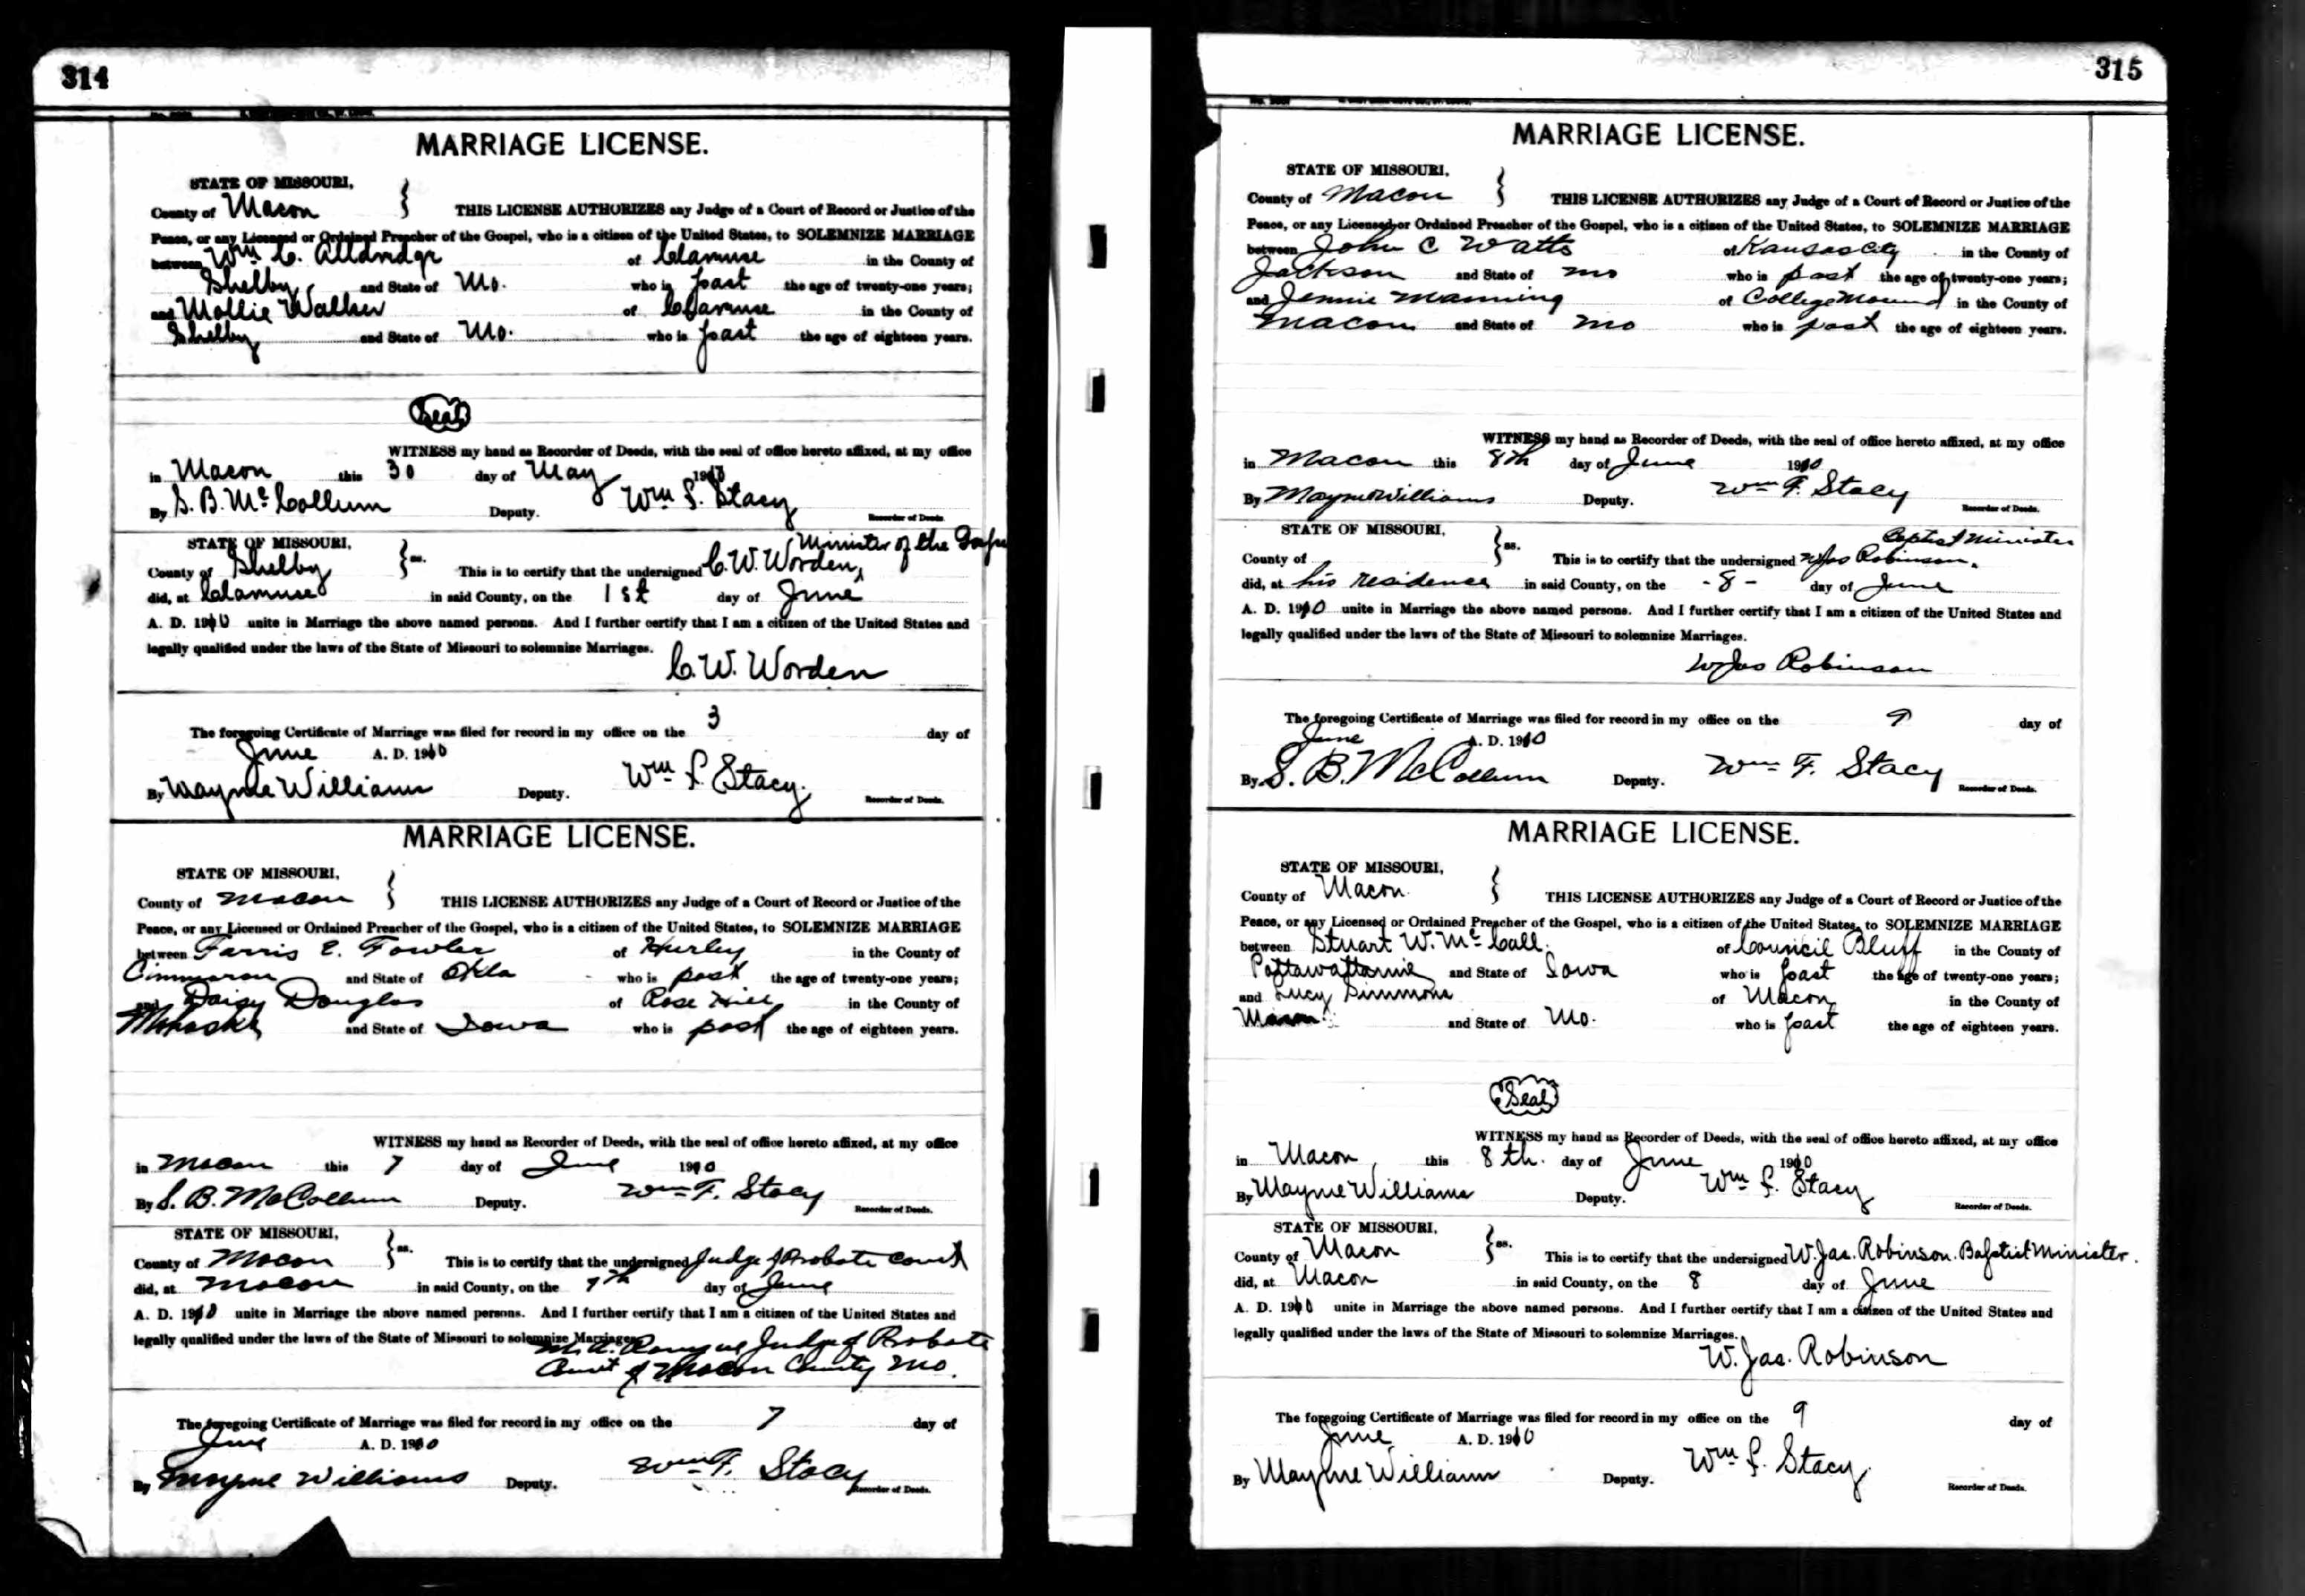 314
MARRIAGE LICENSE.
STATE OF MISSOURI,
County of Macon } THIS LICENSE AUTHORIZES any Judge of a Court of Record or Justice of the
Peace, or any Licensed or Ordained Preacher of the Gospel, who is a citizen of the United States, to SOLEMNIZE MARRIAGE
between Wm C. Alldredge of Clarence in the County of
Shelby and State of Mo. who is past the age of twenty-one years;
and Mollie Walker of Clarence in the County of
Shelby and State of Mo. who is past the age of eighteen years.
Seal
WITNESS my hand as Recorder of Deeds, with the seal of office hereto affixed, at my office
in Macon this 30 day of May 1910
By S. B. McCollum Deputy. Wm F. Stacy Recorder of Deeds.
STATE OF MISSOURI, Minister of the
County of Shelby } ss. This is to certify that the undersigned C. W. Worden,
did, at Clarence in said County, on the 1st day of June
A. D. 1910 unite in Marriage the above named persons. And I further certify that I am a citizen of the United States and
legally qualified under the laws of the State of Missouri to solemnize Marriages.
C. W. Worden
The foregoing Certificate of Marriage was filed for record in my office on the 3 day of
June A. D. 1910
By Mayme Williams Deputy. Wm F. Stacy. Recorder of Deeds.
MARRIAGE LICENSE.
STATE OF MISSOURI,
County of Macon } THIS LICENSE AUTHORIZES any Judge of a Court of Record or Justice of the
Peace, or any Licensed or Ordained Preacher of the Gospel, who is a citizen of the United States, to SOLEMNIZE MARRIAGE
between Farris E. Fowler of Hurley in the County of
Cimmaron and State of Okla who is past the age of twenty-one years;
and Daisy Douglas of Rose Hill in the County of
Mahaska and State of Iowa who is past the age of eighteen years.
WITNESS my hand as Recorder of Deeds, with the seal of office hereto affixed, at my office
in Macon this 7 day of June 1910
By S. B. McCollum Deputy. Wm F. Stacy Recorder of Deeds.
STATE OF MISSOURI,
County of Macon } ss. This is to certify that the undersigned Judge of Probate Court
did, at Macon in said County, on the 7th day of June
A. D. 1910 unite in Marriage the above named persons. And I further certify that I am a citizen of the United States and
legally qualified under the laws of the State of Missouri to solemnize Marriages.
M. A. Judge of Probate
Court of Macon County Mo.
The foregoing Certificate of Marriage was filed for record in my office on the 7 day of
June A. D. 1910
By Mayme Williams Deputy. Wm F. Stacy Recorder of Deeds.
315
MARRIAGE LICENSE.
STATE OF MISSOURI,
County of Macon } THIS LICENSE AUTHORIZES any Judge of a Court of Record or Justice of the
Peace, or any Licensed or Ordained Preacher of the Gospel, who is a citizen of the United States, to SOLEMNIZE MARRIAGE
between John C Watts of Kansas City in the County of
Jackson and State of Mo who is past the age of twenty-one years;
and Jennie Manning of College Mound in the County of
Macon and State of Mo who is past the age of eighteen years.
WITNESS my hand as Recorder of Deeds, with the seal of office hereto affixed, at my office
in Macon this 8th day of June 1910
By Mayme Williams Deputy. Wm F. Stacy Recorder of Deeds.
STATE OF MISSOURI, Baptist Minister
County of } ss. This is to certify that the undersigned W Jas Robinson,
did, at his residence in said County, on the - 8 - day of June
A. D. 1910 unite in Marriage the above named persons. And I further certify that I am a citizen of the United States and
legally qualified under the laws of the State of Missouri to solemnize Marriages.
W Jas Robinson
The foregoing Certificate of Marriage was filed for record in my office on the 9 day of
June A. D. 1910
By S. B. McCollum Deputy. Wm F. Stacy Recorder of Deeds.
MARRIAGE LICENSE.
STATE OF MISSOURI,
County of Macon } THIS LICENSE AUTHORIZES any Judge of a Court of Record or Justice of the
Peace, or any Licensed or Ordained Preacher of the Gospel, who is a citizen of the United States, to SOLEMNIZE MARRIAGE
between Stuart W. McCall of Council Bluff in the County of
Pottawattamie and State of Iowa who is past the age of twenty-one years;
and Lucy Simmons of Macon in the County of
Macon and State of Mo. who is past the age of eighteen years.
Seal
WITNESS my hand as Recorder of Deeds, with the seal of office hereto affixed, at my office
in Macon, this 8th. day of June 1910
By Mayme Williams Deputy. Wm F. Stacy Recorder of Deeds.
STATE OF MISSOURI,
County of Macon } ss. This is to certify that the undersigned W. Jas. Robinson. Baptist Minister.
did, at Macon in said County, on the 8 day of June
A. D. 1910 unite in Marriage the above named persons. And I further certify that I am a citizen of the United States and
legally qualified under the laws of the State of Missouri to solemnize Marriages.
W. Jas. Robinson
The foregoing Certificate of Marriage was filed for record in my office on the 9 day of
June A. D. 1910
By Mayme Williams Deputy. Wm F. Stacy. Recorder of Deeds.